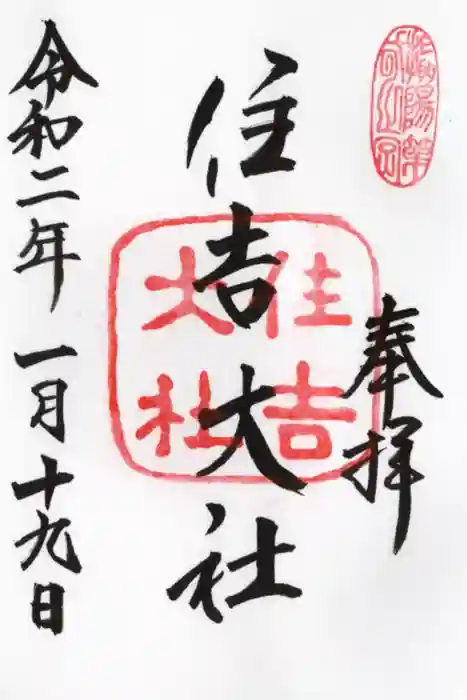 奉拝
住吉大社
住吉
大社
令和二年 一月十九日